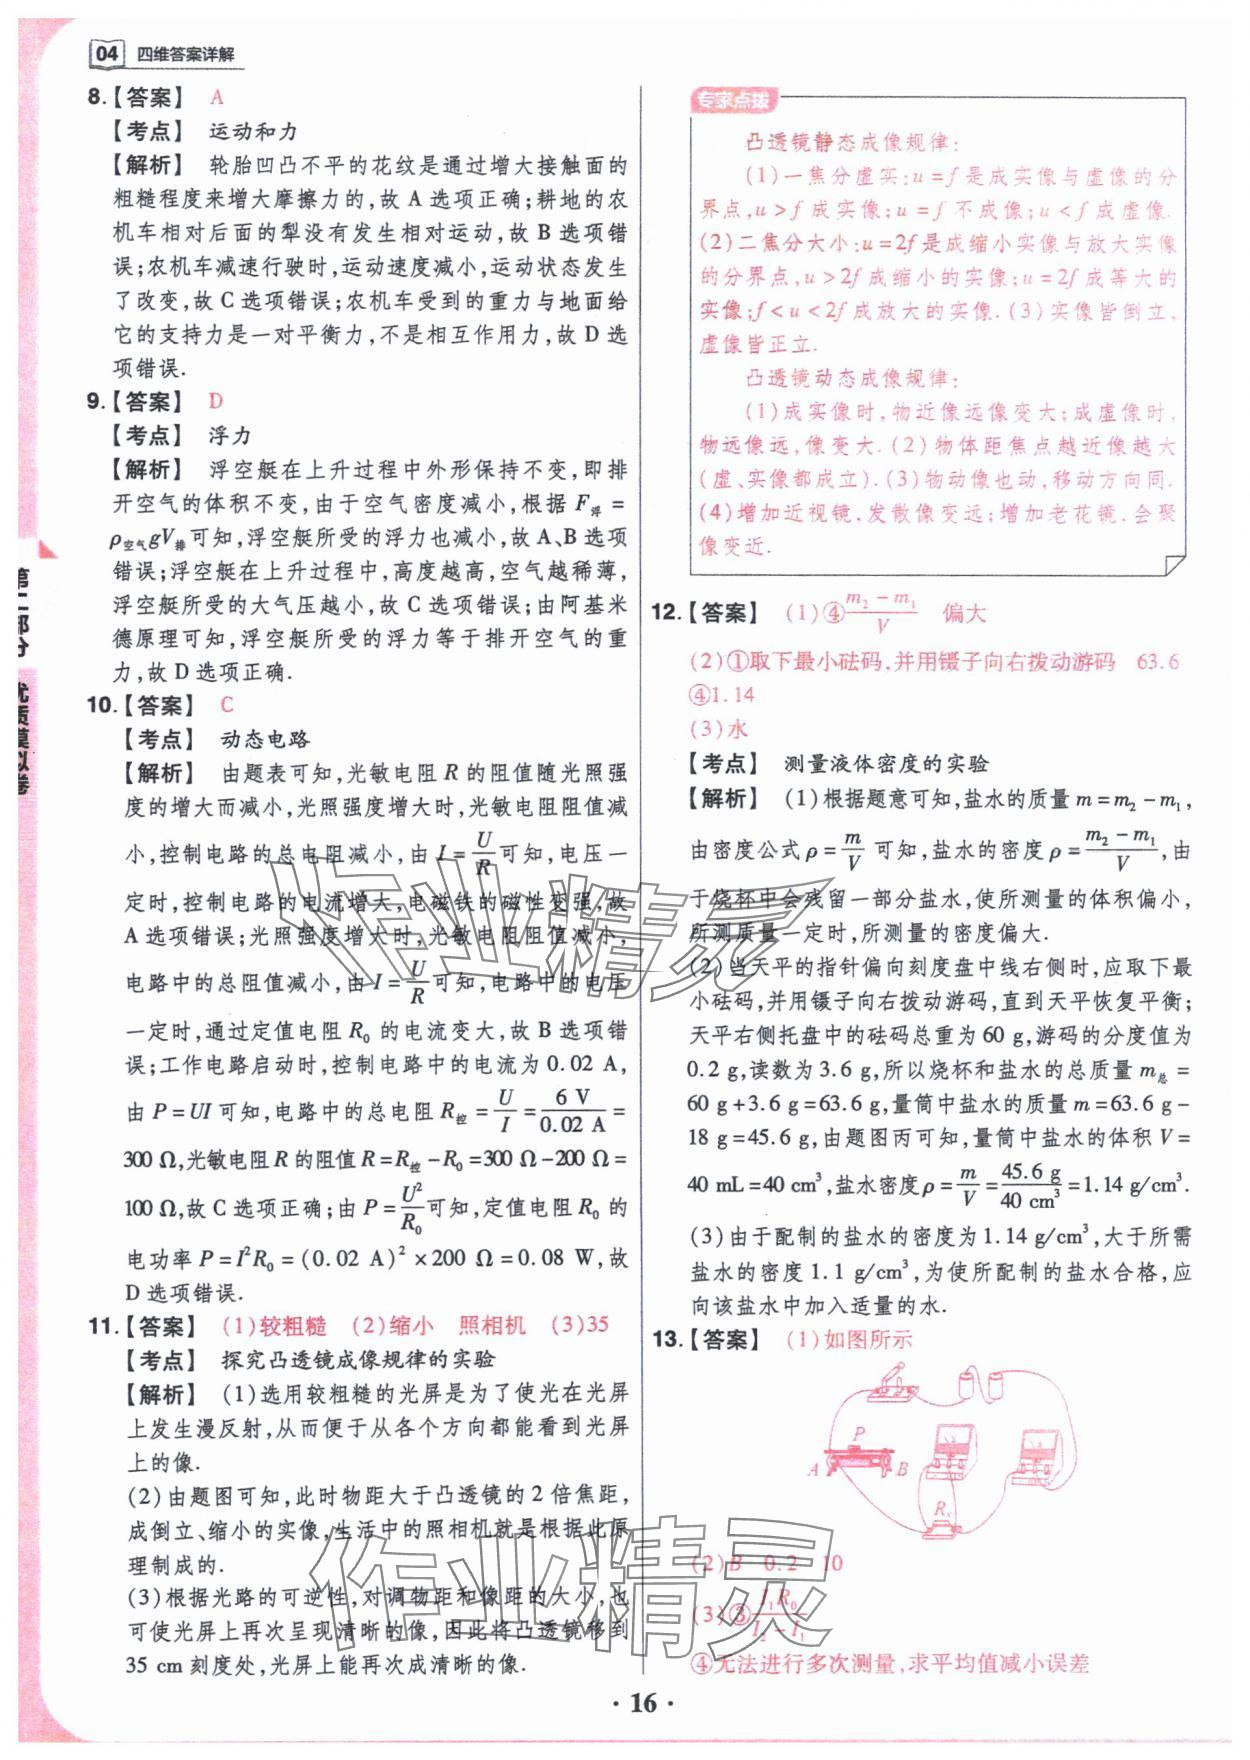 04 四维答案详解
8.【答案】 A
【考点】 运动和力
【解析】 轮胎凹凸不平的花纹是通过增大接触面的
粗糙程度来增大摩擦力的,故 A 选项正确;耕地的农
机车相对后面的犁没有发生相对运动,故 B 选项错
误;农机车减速行驶时,运动速度减小,运动状态发生
了改变,故 C 选项错误;农机车受到的重力与地面给
它的支持力是一对平衡力,不是相互作用力,故 D 选
项错误.
9.【答案】 D
【考点】 浮力
【解析】 浮空艇在上升过程中外形保持不变,即排
开空气的体积不变,由于空气密度减小,根据 F浮 =
ρ空气gV排可知,浮空艇所受的浮力也减小,故 A、B 选项
错误;浮空艇在上升过程中,高度越高,空气越稀薄,
浮空艇所受的大气压越小,故 C 选项错误;由阿基米
德原理可知,浮空艇所受的浮力等于排开空气的重
力,故 D 选项正确.
10.【答案】 C
【考点】 动态电路
【解析】 由题表可知,光敏电阻 R 的阻值随光照强
度的增大而减小,光照强度增大时,光敏电阻阻值减
小,控制电路的总电阻减小,由 I = U/R 可知,电压一
定时,控制电路的电流增大,电磁铁的磁性变强,故
A 选项错误;光照强度增大时,光敏电阻阻值减小,
电路中的总阻值减小,由 I = U/R 可知,电路中的电压
一定时,通过定值电阻 R₀ 的电流变大,故 B 选项错
误;工作电路启动时,控制电路中的电流为 0.02 A,
由 P = UI 可知,电路中的总电阻 R控 = U/I = 6 V/0.02 A =
300 Ω,光敏电阻 R 的阻值 R = R控 - R₀ = 300 Ω - 200 Ω =
100 Ω,故 C 选项正确;由 P = U²/R₀ 可知,定值电阻 R₀ 的
电功率 P = I²R₀ = (0.02 A)² × 200 Ω = 0.08 W,故
D 选项错误.
11.【答案】 (1)较粗糙 (2)缩小 照相机 (3)35
【考点】 探究凸透镜成像规律的实验
【解析】 (1)选用较粗糙的光屏是为了使光在光屏
上发生漫反射,从而便于从各个方向都能看到光屏
上的像.
(2)由题图可知,此时物距大于凸透镜的 2 倍焦距,
成倒立、缩小的实像,生活中的照相机就是根据此原
理制成的.
(3)根据光路的可逆性,对调物距和像距的大小,也
可使光屏上再次呈现清晰的像,因此将凸透镜移到
35 cm 刻度处,光屏上能再次成清晰的像.
专家点拨
凸透镜静态成像规律:
(1)一焦分虚实:u = f 是成实像与虚像的分
界点,u > f 成实像;u = f 不成像;u < f 成虚像.
(2)二焦分大小:u = 2f 是成缩小实像与放大实像
的分界点,u > 2f 成缩小的实像;u = 2f 成等大的
实像;f < u < 2f 成放大的实像.(3)实像皆倒立,
虚像皆正立.
凸透镜动态成像规律:
(1)成实像时,物近像远像变大;成虚像时,
物远像远,像变大.(2)物体距焦点越近像越大
(虚、实像都成立).(3)物动像也动,移动方向同.
(4)增加近视镜,发散像变远;增加老花镜.会聚
像变近.
12.【答案】 (1)④ (m₂ - m₁)/V 偏大
(2)①取下最小砝码,并用镊子向右拨动游码 63.6
④1.14
(3)水
【考点】 测量液体密度的实验
【解析】 (1)根据题意可知,盐水的质量 m = m₂ - m₁,
由密度公式 ρ = m/V 可知,盐水的密度 ρ = (m₂ - m₁)/V,由
于烧杯中会残留一部分盐水,使所测量的体积偏小,
所测质量一定时,所测量的密度偏大.
(2)当天平的指针偏向刻度盘中线右侧时,应取下最
小砝码,并用镊子向右拨动游码,直到天平恢复平衡;
天平右侧托盘中的砝码总重为 60 g,游码的分度值为
0.2 g,读数为 3.6 g,所以烧杯和盐水的总质量 m总 =
60 g + 3.6 g = 63.6 g,量筒中盐水的质量 m = 63.6 g -
18 g = 45.6 g,由题图丙可知,量筒中盐水的体积 V =
40 mL = 40 cm³,盐水密度 ρ = m/V = 45.6 g/40 cm³ = 1.14 g/cm³.
(3)由于配制的盐水的密度为 1.14 g/cm³,大于所需
盐水的密度 1.1 g/cm³,为使所配制的盐水合格,应
向该盐水中加入适量的水.
13.【答案】 (1)如图所示
P
A B
Rₓ
(2)B 0.2 10
(3)③ I₁R₀/(I₂ - I₁)
④无法进行多次测量,求平均值减小误差
第二部分 优质模拟卷
作业精灵
作业精灵
· 16 ·